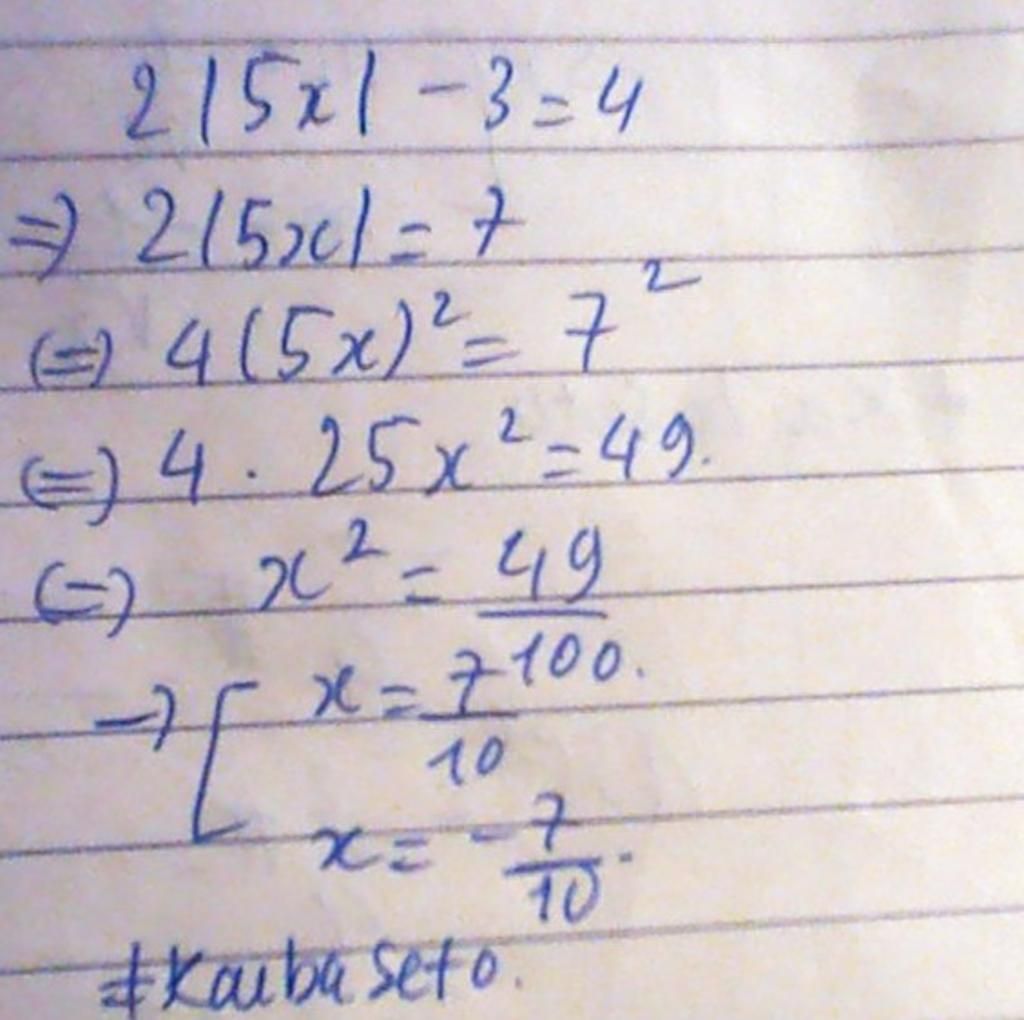 2|5x| - 3 = 4
=> 2|5x| = 7
(=) 4(5x)² = 7²
(=) 4 . 25x² = 49.
(=) x² = 49/100.
-> [ x = 7/10
x = -7/10.
#Kaiba Seto.